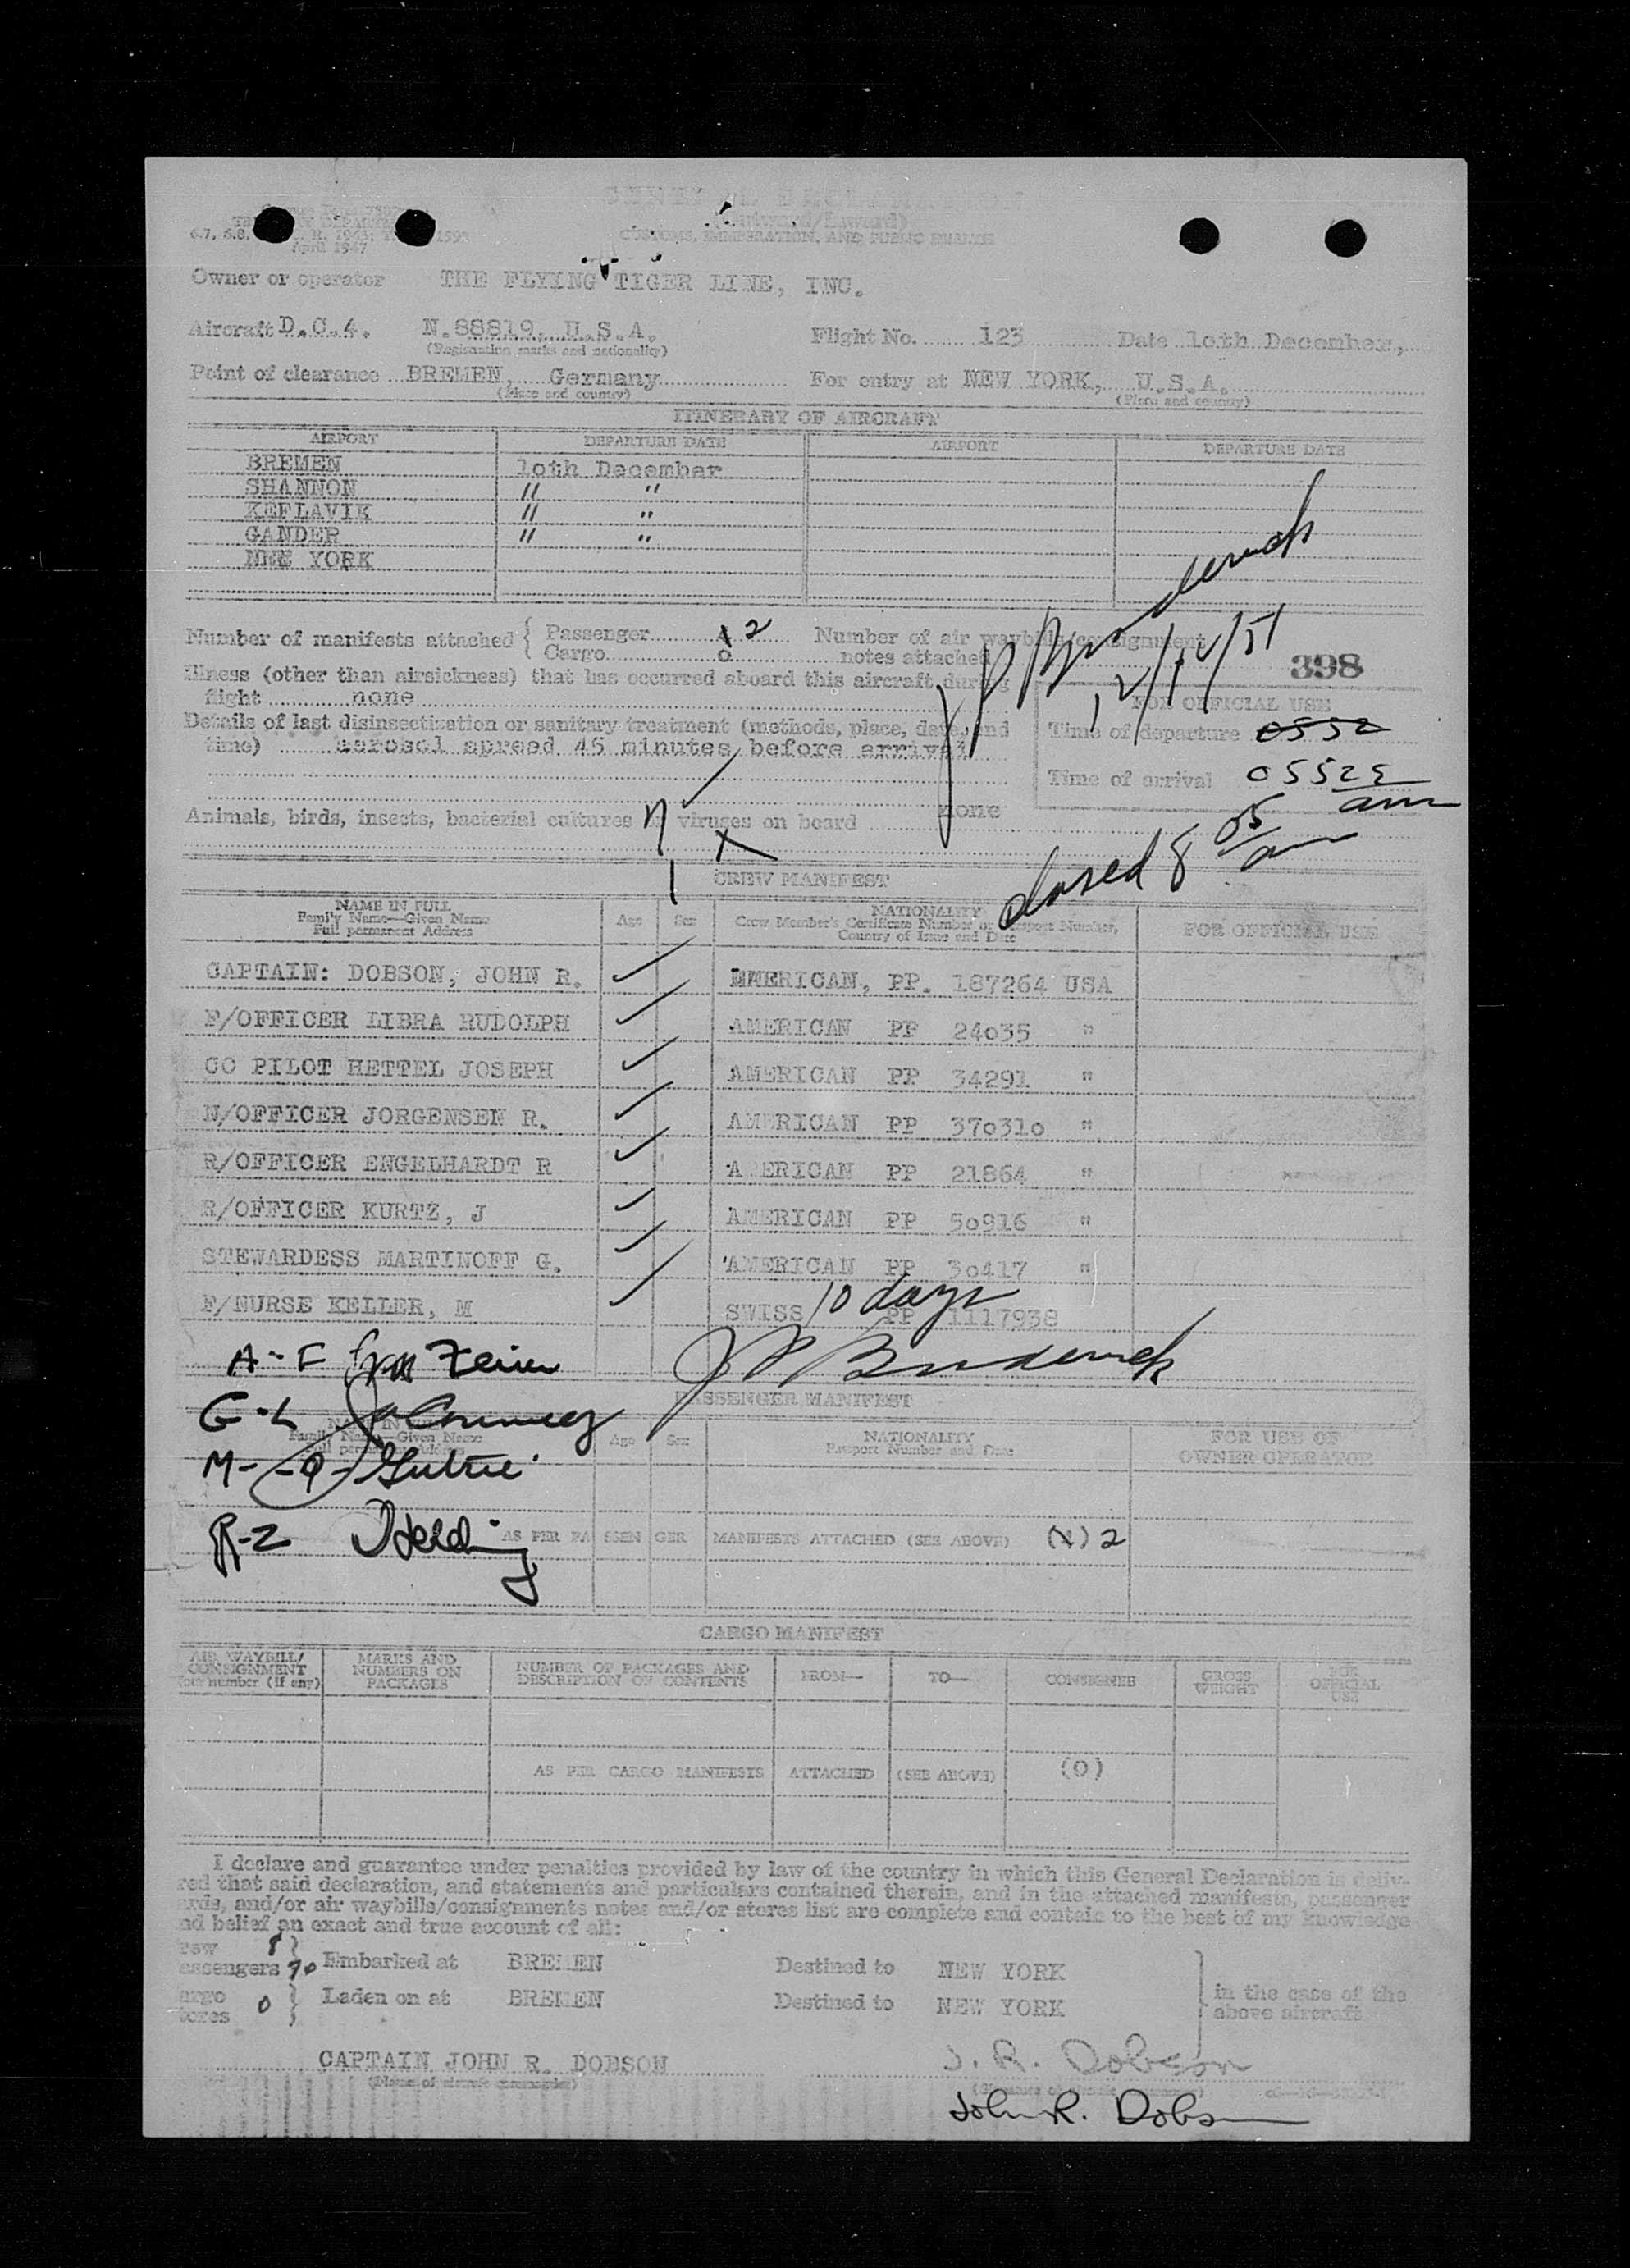 GENERAL DECLARATION
(Outward/Inward)
CUSTOMS, IMMIGRATION, AND PUBLIC HEALTH
April 1947
Owner or operator THE FLYING TIGER LINE, INC.
Aircraft D.C.4. N.88819, U.S.A. Flight No. 123 Date 1oth December,
(Registration marks and nationality)
Point of clearance BREMEN, Germany For entry at NEW YORK, U.S.A.
(Place and country) (Place and country)
ITINERARY OF AIRCRAFT
AIRPORT DEPARTURE DATE AIRPORT DEPARTURE DATE
BREMEN 1oth December
SHANNON " "
KEFLAVIK " "
GANDER " "
NEW YORK
Number of manifests attached { Passenger 2 Number of air waybills/consignment
Cargo o notes attached
12/11/51
398
Illness (other than airsickness) that has occurred aboard this aircraft during
flight none
FOR OFFICIAL USE
Details of last disinsectization or sanitary treatment (methods, place, date, and
time) aerosol spread 45 minutes before arrival
Time of departure 0552
Time of arrival 0552
am
Animals, birds, insects, bacterial cultures or viruses on board none
closed 8 05
am
CREW MANIFEST
NAME IN FULL
Family Name—Given Name
Full permanent Address
Age Sex
NATIONALITY
Crew Member's Certificate Number or Passport Number,
Country of Issue and Date
FOR OFFICIAL USE
CAPTAIN: DOBSON, JOHN R. AMERICAN, PP. 187264 USA
F/OFFICER LIBRA RUDOLPH AMERICAN PP 24o35 "
CO PILOT HETTEL JOSEPH AMERICAN PP 34291 "
N/OFFICER JORGENSEN R. AMERICAN PP 37o31o "
R/OFFICER ENGELHARDT R A ERICAN PP 21864 "
R/OFFICER KURTZ, J AMERICAN PP 5o916 "
STEWARDESS MARTINOFF G. AMERICAN PP 3o417 "
F/NURSE KELLER, M SWISS 10 days PP 1117938
A-F
G-L
PASSENGER MANIFEST
NAME IN FULL
Family Name—Given Name
Full permanent Address
Age Sex
NATIONALITY
Passport Number and Date
FOR USE OF
OWNER OPERATOR
M-Q-
R-Z
AS PER PASSENGER MANIFESTS ATTACHED (SEE ABOVE) 2
CARGO MANIFEST
AIR WAYBILL/
CONSIGNMENT
number (if any)
MARKS AND
NUMBERS ON
PACKAGES
NUMBER OF PACKAGES AND
DESCRIPTION OF CONTENTS
FROM— TO— CONSIGNEE
GROSS
WEIGHT
FOR
OFFICIAL
USE
AS PER CARGO MANIFESTS ATTACHED (SEE ABOVE) (0)
I declare and guarantee under penalties provided by law of the country in which this General Declaration is deliv-
red that said declaration, and statements and particulars contained therein, and in the attached manifests, passenger
ards, and/or air waybills/consignments notes and/or stores list are complete and contain to the best of my knowledge
nd belief an exact and true account of all:
rew 8
assengers 70 } Embarked at BREMEN Destined to NEW YORK
argo
tores 0 } Laden on at BREMEN Destined to NEW YORK
in the case of the
above aircraft
CAPTAIN JOHN R. DOBSON J. R. Dobson
John R. Dobson